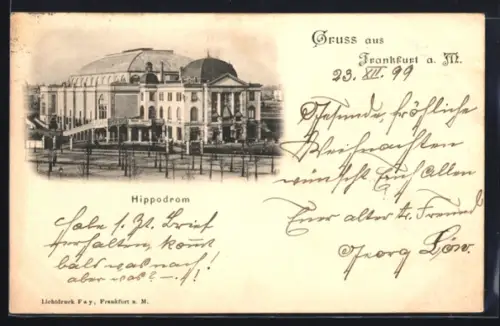 Gruss aus
Frankfurt a. M.
23. XII. 99
Gesunde, fröhliche
Weihnachten
wünscht Euch Allen
Euer alter tr. Freund
Georg Löw.
Hippodrom
Habe s. Zt. Brief
erhalten, kommt
bald was nach!
aber was? — . !
Lichtdruck Fay, Frankfurt a. M.